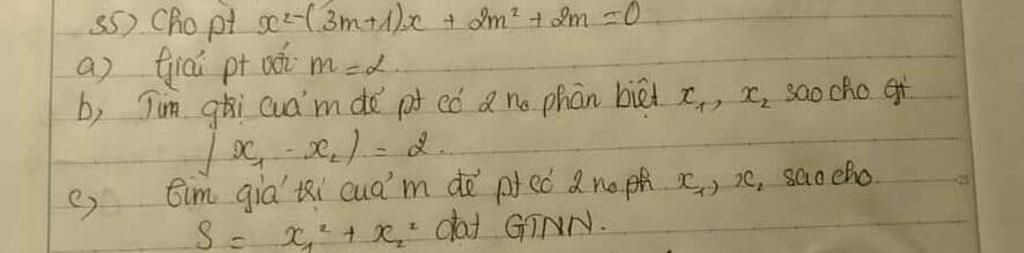 35) Cho pt x²-(3m+1)x + 2m² + 2m = 0
a) Giải pt với m = 2.
b, Tìm gtrị của m để pt có 2 no phân biệt x₁, x₂ sao cho gt
| x₁ - x₂ | = 2.
c, tìm giá trị của m để pt có 2 no pb x₁, x₂ sao cho
S = x₁² + x₂² đạt GTNN.